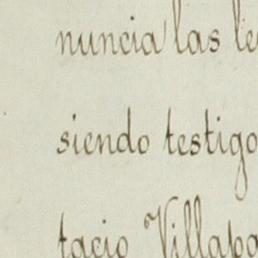 nuncia las le
siendo testigo
tacio Villapa